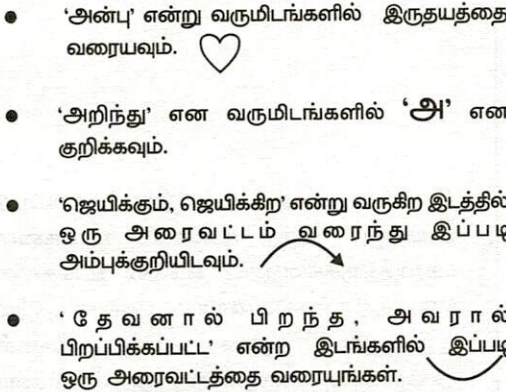 ● ‘அன்பு’ என்று வருமிடங்களில் இருதயத்தை
வரையவும்.
● ‘அறிந்து’ என வருமிடங்களில் ‘அ’ என
குறிக்கவும்.
● ‘ஜெயிக்கும், ஜெயிக்கிற’ என்று வருகிற இடத்தில்
ஒரு அரைவட்டம் வரைந்து இப்படி
அம்புக்குறியிடவும்.
● ‘தேவனால் பிறந்த, அவரால்
பிறப்பிக்கப்பட்ட’ என்ற இடங்களில் இப்படி
ஒரு அரைவட்டத்தை வரையுங்கள்.